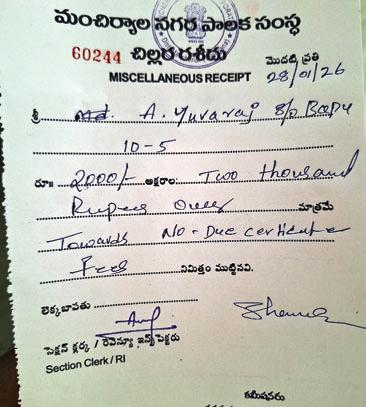 మంచిర్యాల నగర పాలక సంస్థ
60244 చిల్లర రశీదు మొదటి ప్రతి
MISCELLANEOUS RECEIPT 28/01/26
శ్రీ Md. A. Yuvaraj S/o Bapu
10-5
రూ॥ 2000/- అక్షరాల: Two thousand
Rupees Only మాత్రమే
Towards No-Due certificate
Fees నిమిత్తం ముట్టినవి.
లెక్కబాపతు
సెక్షన్ క్లర్కు / రెవెన్యూ ఇన్స్పెక్టరు
Section Clerk / RI
కమీషనరు